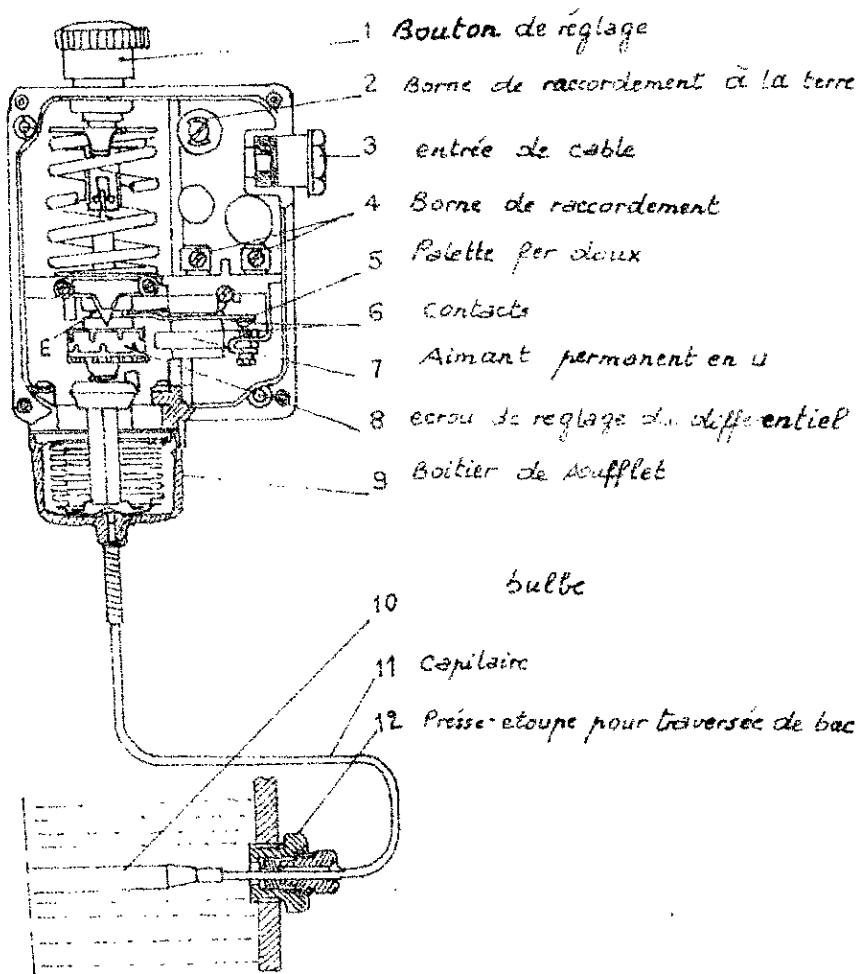 1 Bouton de réglage
2 Borne de raccordement à la terre
3 entrée de cable
4 Borne de raccordement
5 Palette fer doux
6 contacts
E
7 Aimant permanent en U
8 ecrou de reglage du differentiel
9 Boitier de soufflet
bulbe
10
11 Capilaire
12 Presse-etoupe pour traversée de bac